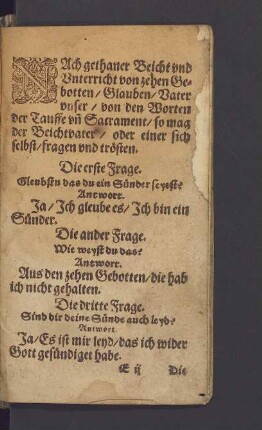 NAch gethaner Beicht vnd
Vnterricht von zehen Ge-
botten/ Glauben/ Vater
vnser/ von den Worten
der Tauffe vñ Sacrament/ so mag
der Beichtvater/ oder einer sich
selbst/ fragen vnd trösten.
Die erste Frage.
Gleubstu das du ein Sünder seyest?
Antwort.
Ja/ Ich gleube es/ Ich bin ein
Sünder.
Die ander Frage.
Wie weyst du das?
Antwort.
Aus den zehen Gebotten/ die hab
ich nicht gehalten.
Die dritte Frage.
Sind dir deine Sünde auch leyd?
Antwort
Ja/ Es ist mir leyd/ das ich wider
Gott gesündiget habe.
E ij Die